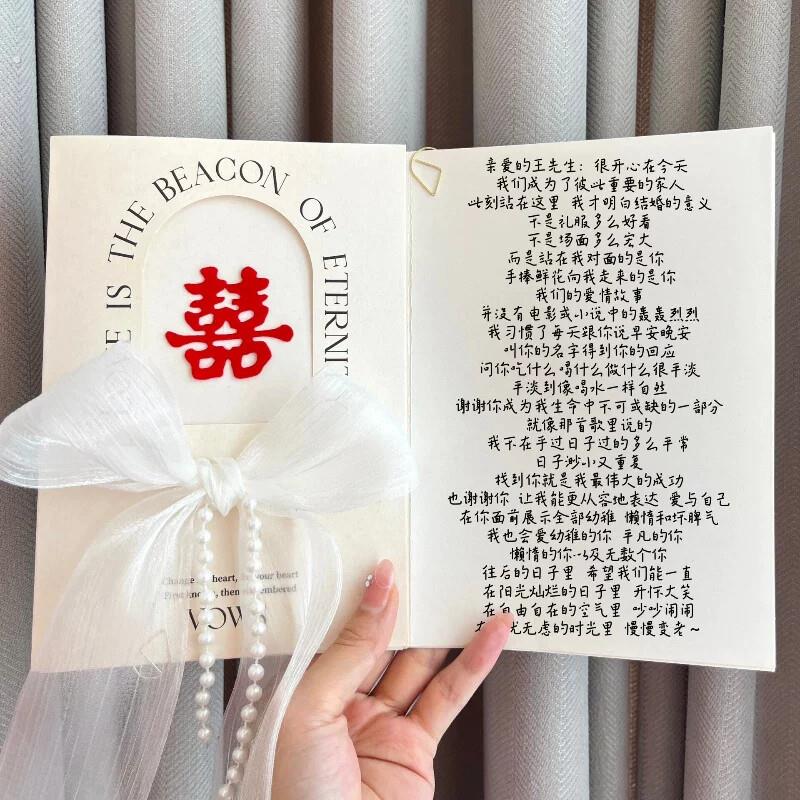 IS THE BEACON OF ETERNI
囍
Change heart, your heart
First kno then embered
VOWS
亲爱的王先生：很开心在今天
我们成为了彼此重要的家人
此刻站在这里 我才明白结婚的意义
不是礼服多么好看
不是场面多么宏大
而是站在我对面的是你
手捧鲜花向我走来的是你
我们的爱情故事
并没有电影或小说中的轰轰烈烈
我习惯了每天跟你说早安晚安
叫你的名字得到你的回应
问你吃什么喝什么做什么很平淡
平淡到像喝水一样自然
谢谢你成为我生命中不可或缺的一部分
就像那首歌里说的
我不在乎过日子过的多么平常
日子渺小又重复
找到你就是我最伟大的成功
也谢谢你 让我能更从容地表达 爱与自己
在你面前展示全部幼稚 懒惰和坏脾气
我也会爱幼稚的你 平凡的你
懒惰的你以及无数个你
往后的日子里 希望我们能一直
在阳光灿烂的日子里 开怀大笑
在自由自在的空气里 吵吵闹闹
无虑的时光里 慢慢变老~